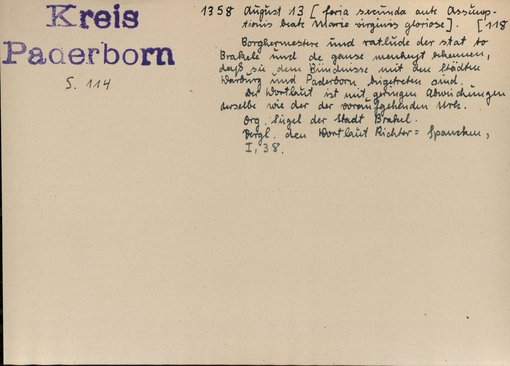 Kreis
Paderborn
S. 114
1358 August 13 [feria secunda ante Assump-
tionis beate Marie virginis gloriose]. [118
Borghermestere und ratlude der stat to
Brakele und de ganse menheyt bekennen,
daß sie dem Bündnisse mit den Städten
Warburg und Paderborn beigetreten sind.
Der Wortlaut ist mit geringen Abweichungen
derselbe wie der der voraufgehenden Urk.
Org. Siegel der Stadt Brakel.
Vergl. den Wortlaut Richter-Spancken,
I, 38.